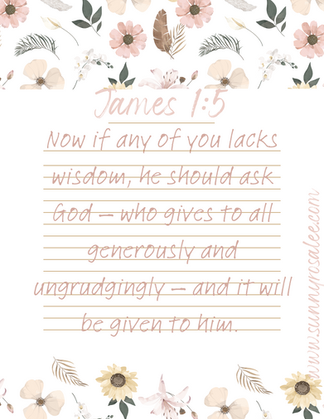 James 1:5
Now if any of you lacks
wisdom, he should ask
God – who gives to all
generously and
ungrudgingly – and it will
be given to him.
www.sunnyrosalee.com